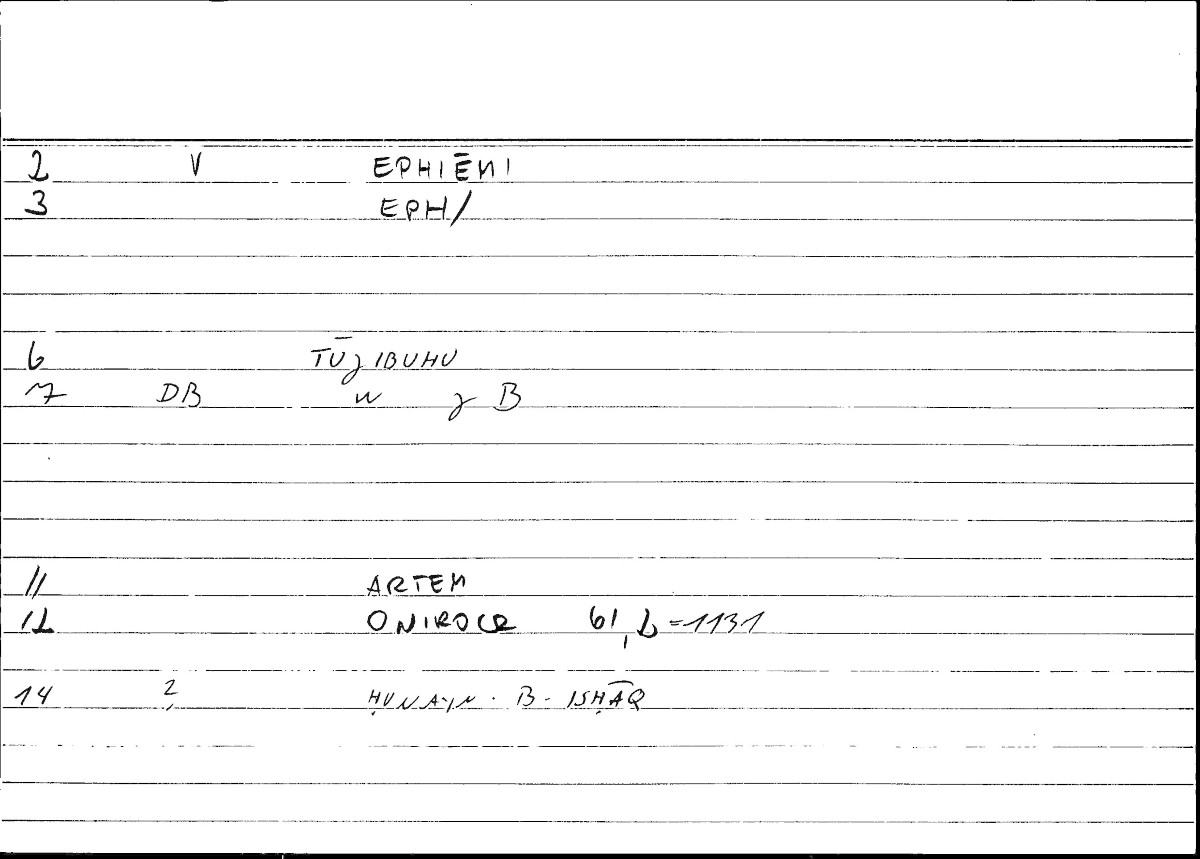 2 V EPHIĒNI
3 EPH/
6 TŪǧIBUHU
7 DB w ǧ B
11 ARTEM
12 ONIROCR 61,2=1131
14 2 ḤUNAYN · B · ISḤĀQ